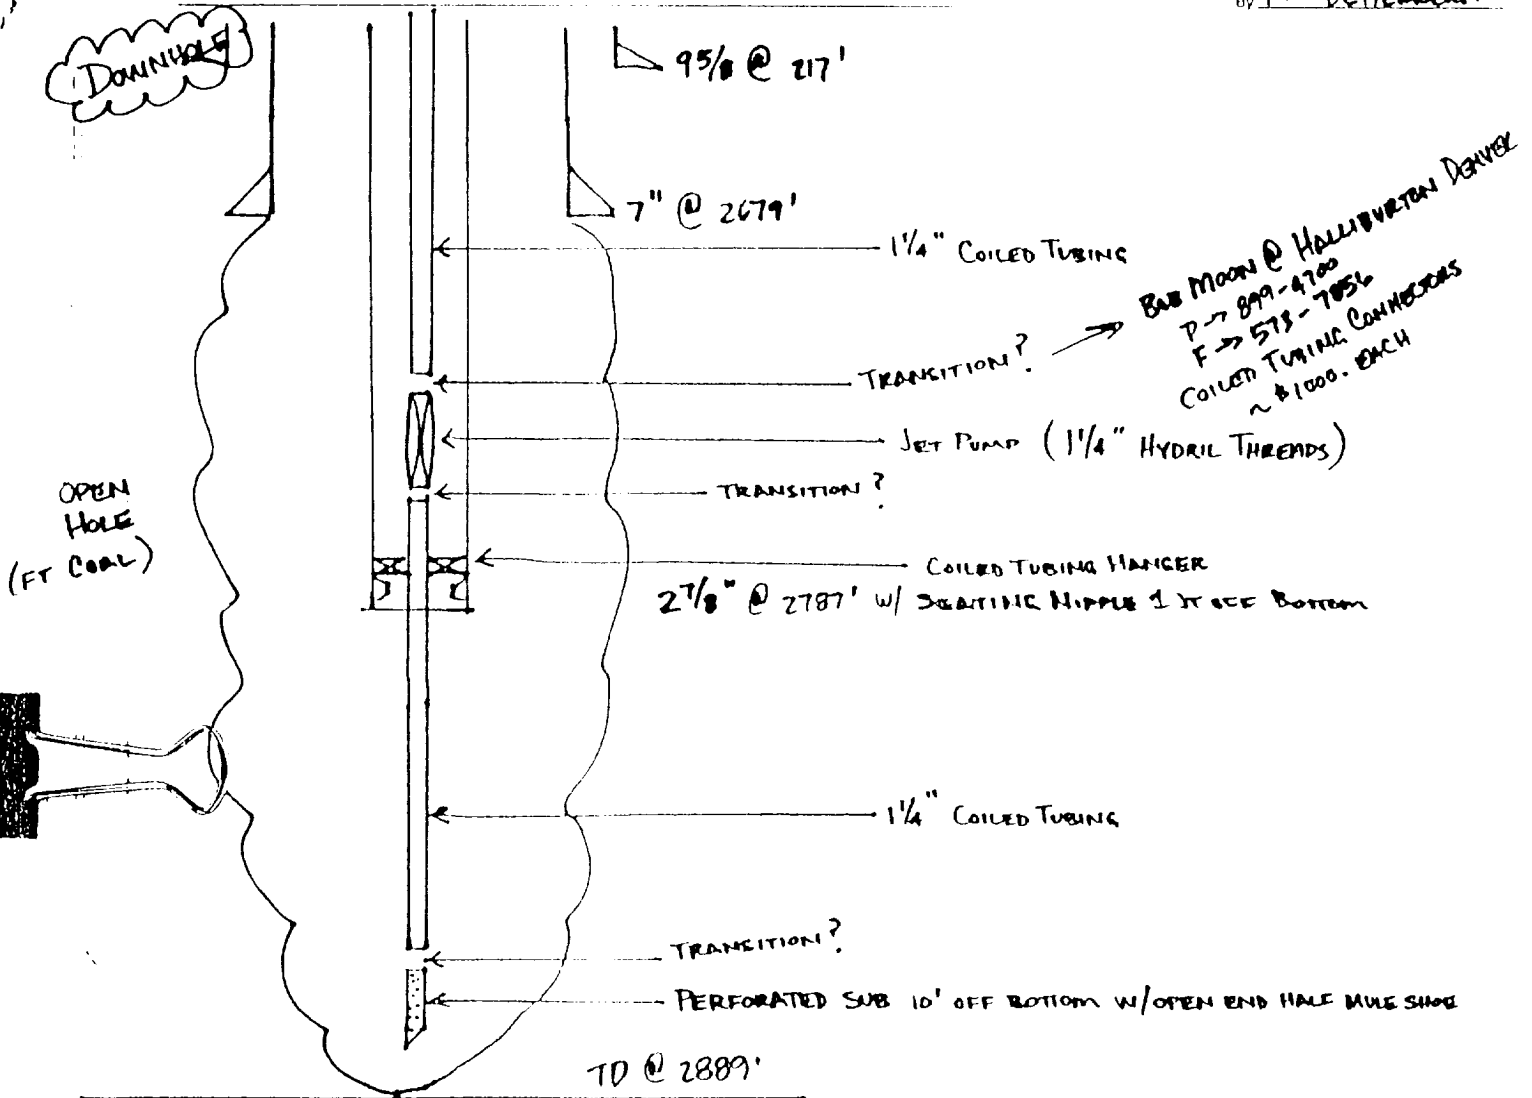 BY
DOWNHOLE
9 5/8 @ 217'
7" @ 2679'
1 1/4" COILED TUBING
TRANSITION?
BOB MOON @ HALLIBURTON DENVER
P → 899-4700
F → 573-7856
COILED TUBING CONNECTORS
~ $1000. EACH
JET PUMP (1 1/4" HYDRIL THREADS)
TRANSITION?
OPEN
HOLE
(FT COAL)
COILED TUBING HANGER
2 7/8" @ 2787' W/ SEATING NIPPLE 1 JT OFF BOTTOM
1 1/4" COILED TUBING
TRANSITION?
PERFORATED SUB 10' OFF BOTTOM W/OPEN END HALF MULE SHOE
TD @ 2889'